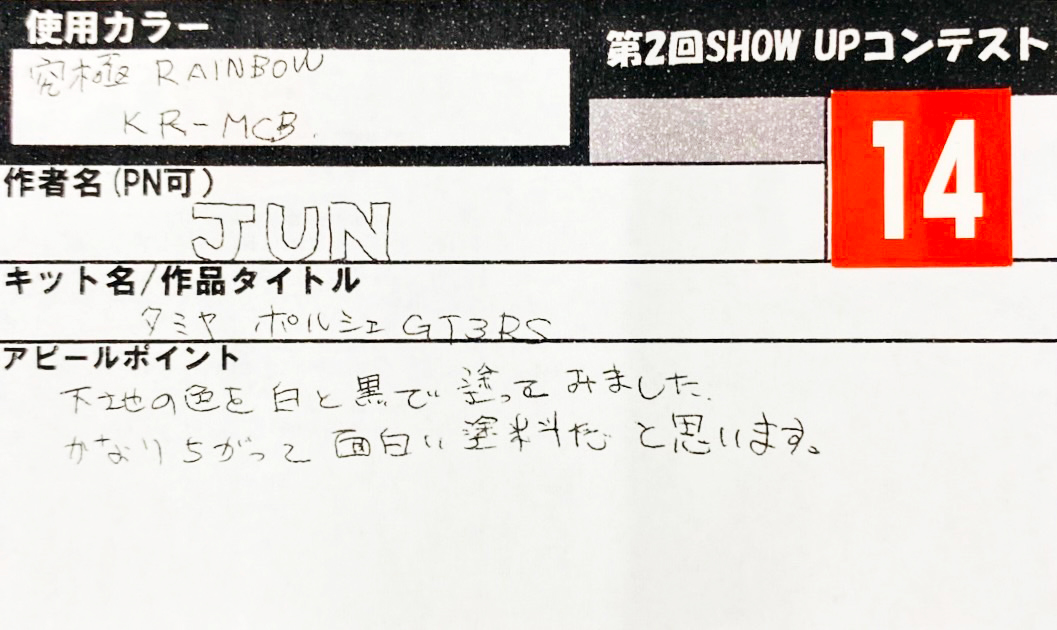 使用カラー
究極 RAINBOW
KR-MCB.
第2回SHOW UPコンテスト
14
作者名(PN可)
JUN
キット名/作品タイトル
タミヤ ポルシェ GT3RS
アピールポイント
下地の色を白と黒で塗ってみました.
かなりちがって面白い塗料だと思います。